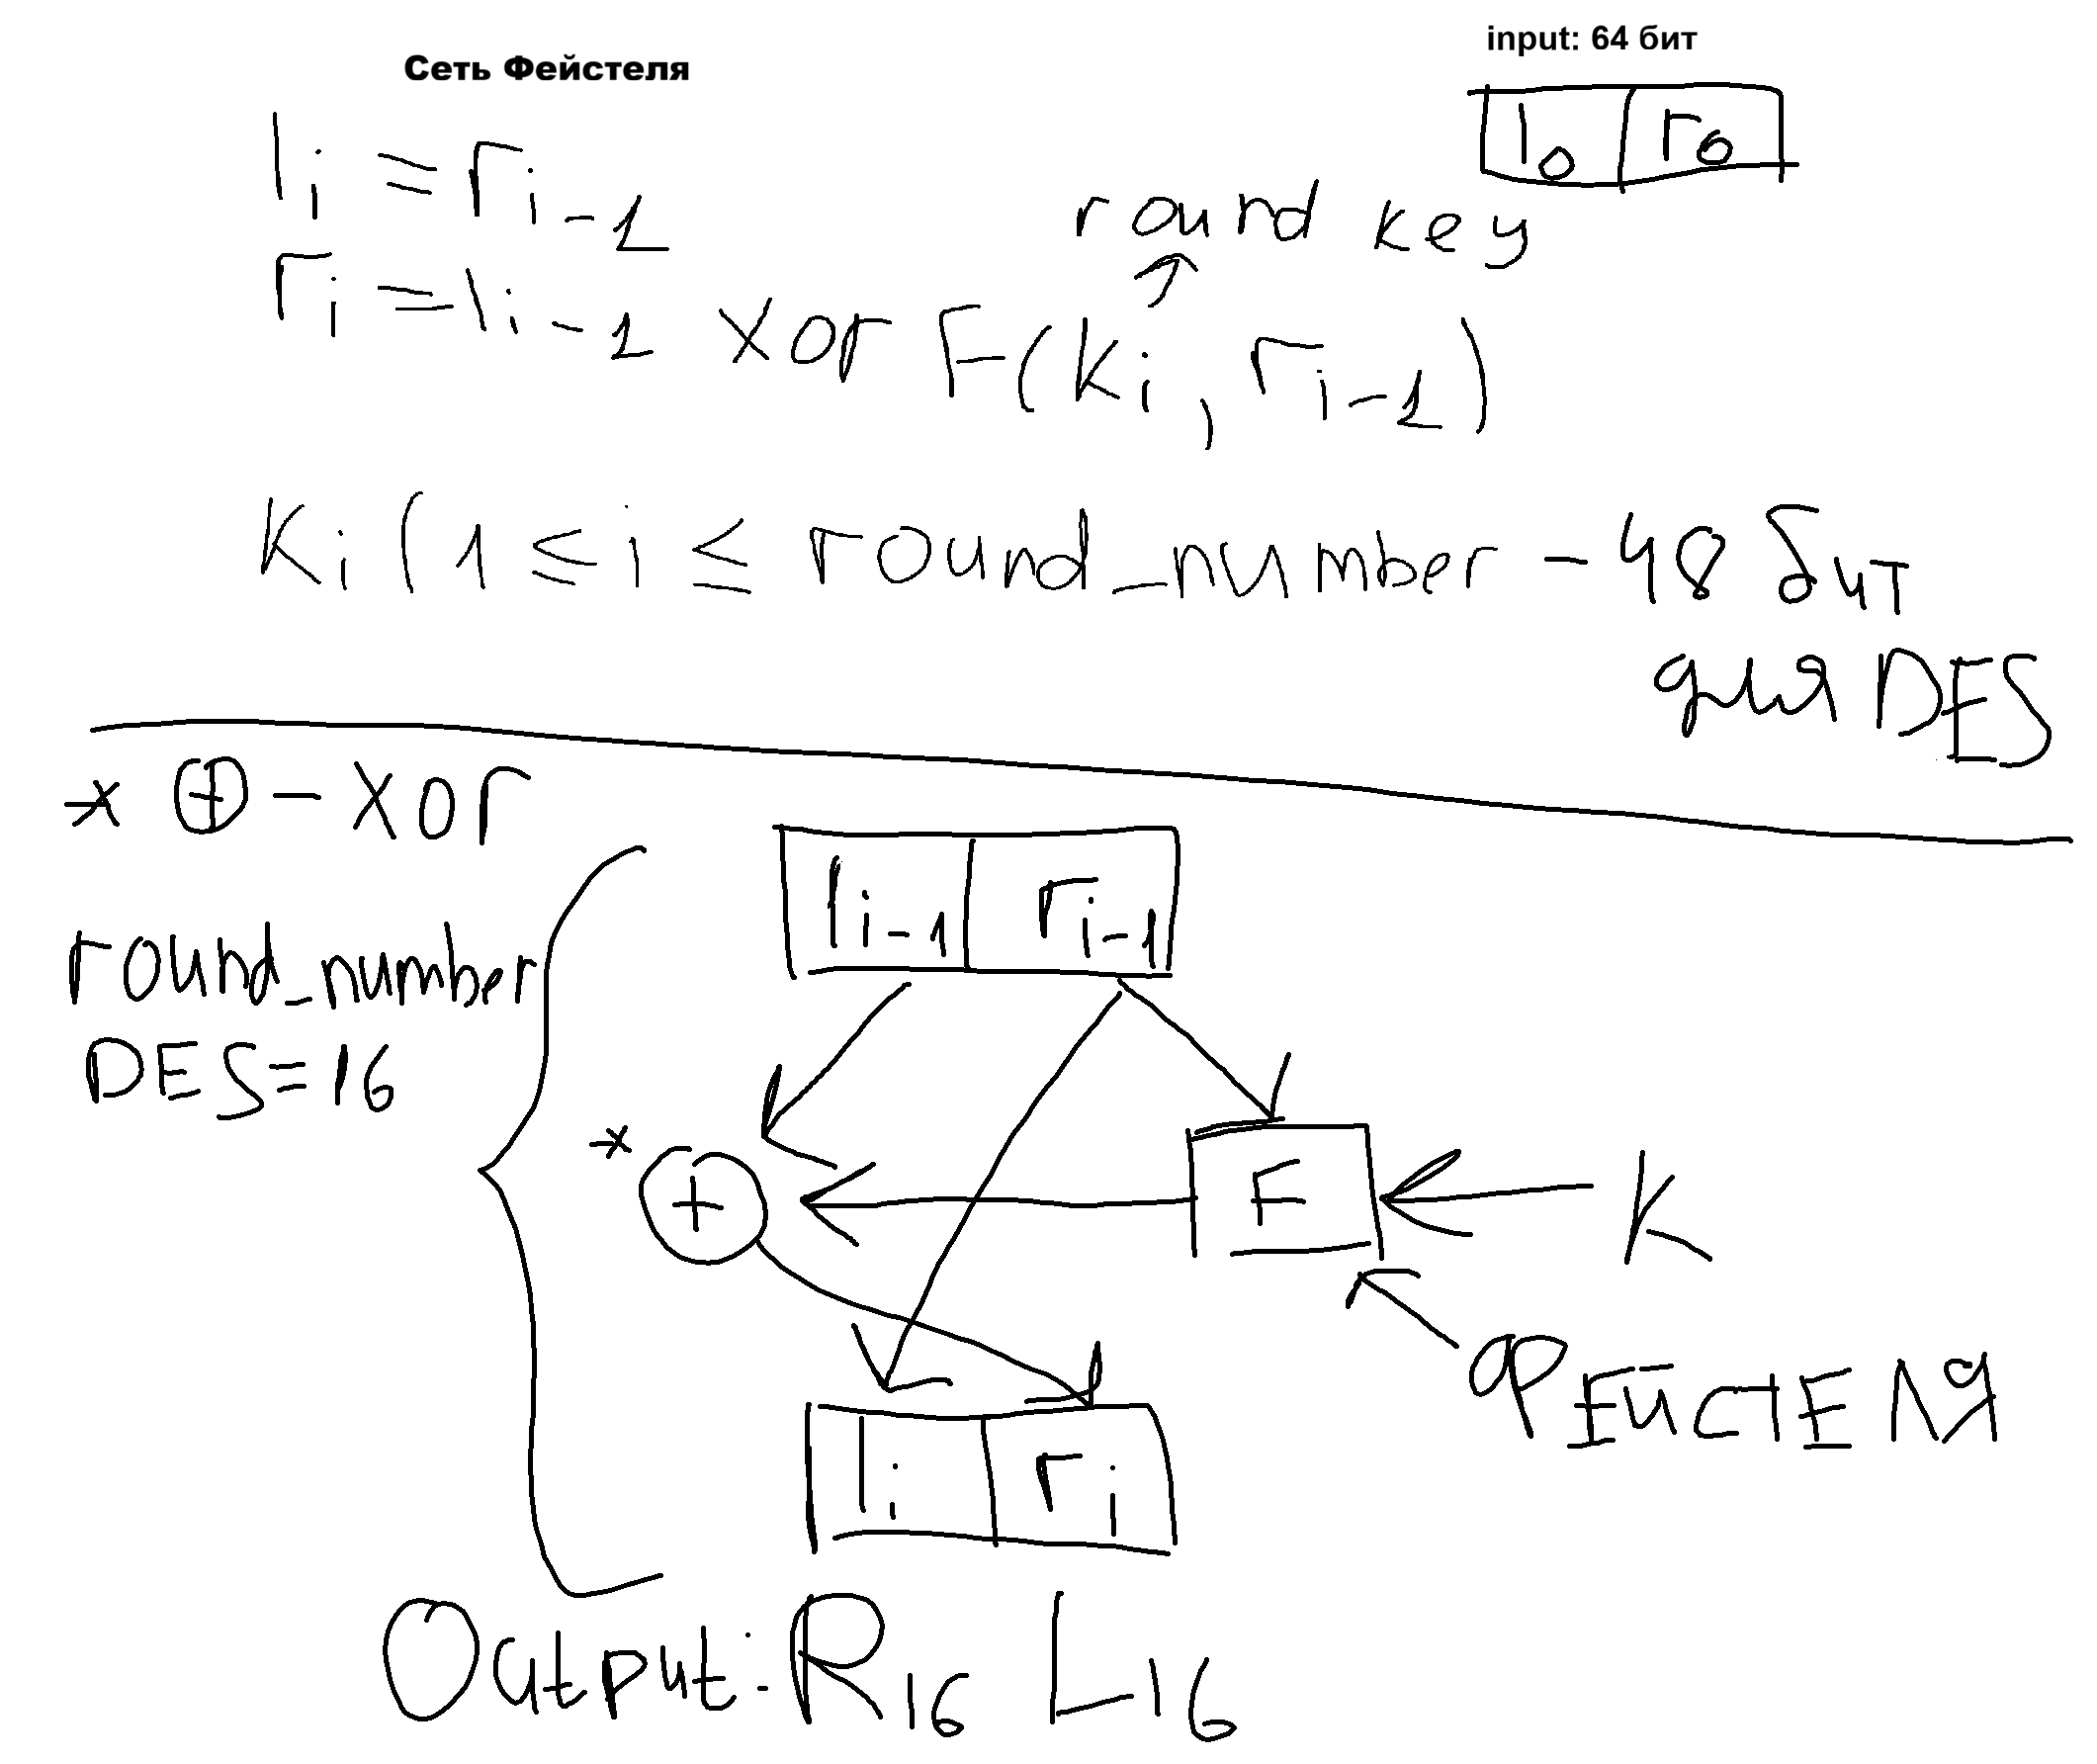 Сеть Фейстеля
input: 64 бит
l0 r0
li = ri-1
round key
ri = li-1 xor F(Ki, ri-1)
Ki (1 ≤ i ≤ round_number - 48 бит
для DES
* ⊕ - xor
li-1 ri-1
round_number
DES = 16
* +
F
K
ФЕЙСТЕЛЯ
li ri
Output: R16 L16